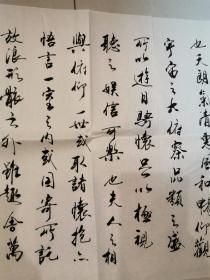 也天朗氣清惠風和暢仰觀
宇宙之大俯察品類之盛
所以遊目騁懷足以極視
聽之娛信可樂也夫人之相
與俯仰一世或取諸懷抱
悟言一室之內或因寄所託
放浪形骸之外雖趣舍萬